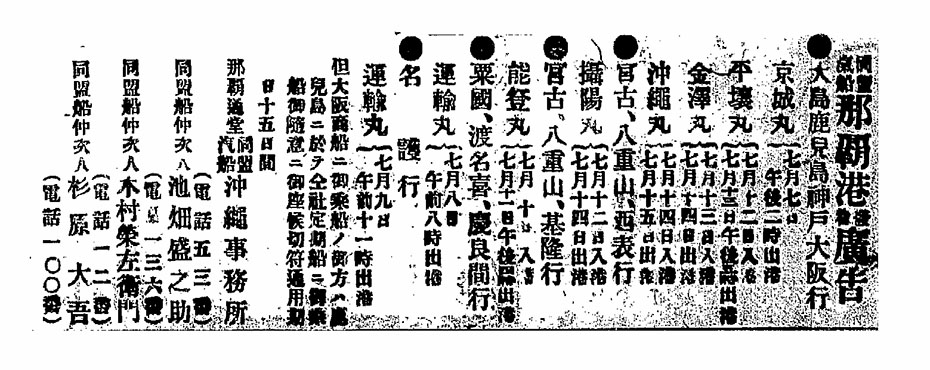 同盟汽船那覇港發着廣告
●大島鹿兒島神戸大阪行
京城丸 七月七日
午後二時出港
平壤丸 七月十二日入港
七月十三日午後四時出港
金澤丸 七月十三日入港
七月十四日出港
沖繩丸 七月十四日入港
七月十五日出港
●宮古、八重山、西表行
攝陽丸 七月十二日入港
七月十四日出港
●宮古、八重山、基隆行
能登丸 七月十日入港
七月十一日午後四時出港
●粟國、渡名喜、慶良間行
運輸丸 七月八日
午前八時出港
●名護行
運輸丸 七月九日
午前十一時出港
但大阪商船ニ御乘船ノ御方ハ鹿
兒島ニ於テ仝社定期船ニ御乘
船御隨意ニ御座候切符通用期
日十五日間
那覇通堂 同盟汽船 沖繩事務所
(電話五三番)
同盟船仲次人 池畑盛之助
(電話一三六番)
同盟船仲次人 木村榮左衛門
(電話一一二番)
同盟船仲次人 杉原大吾
(電話一〇〇番)